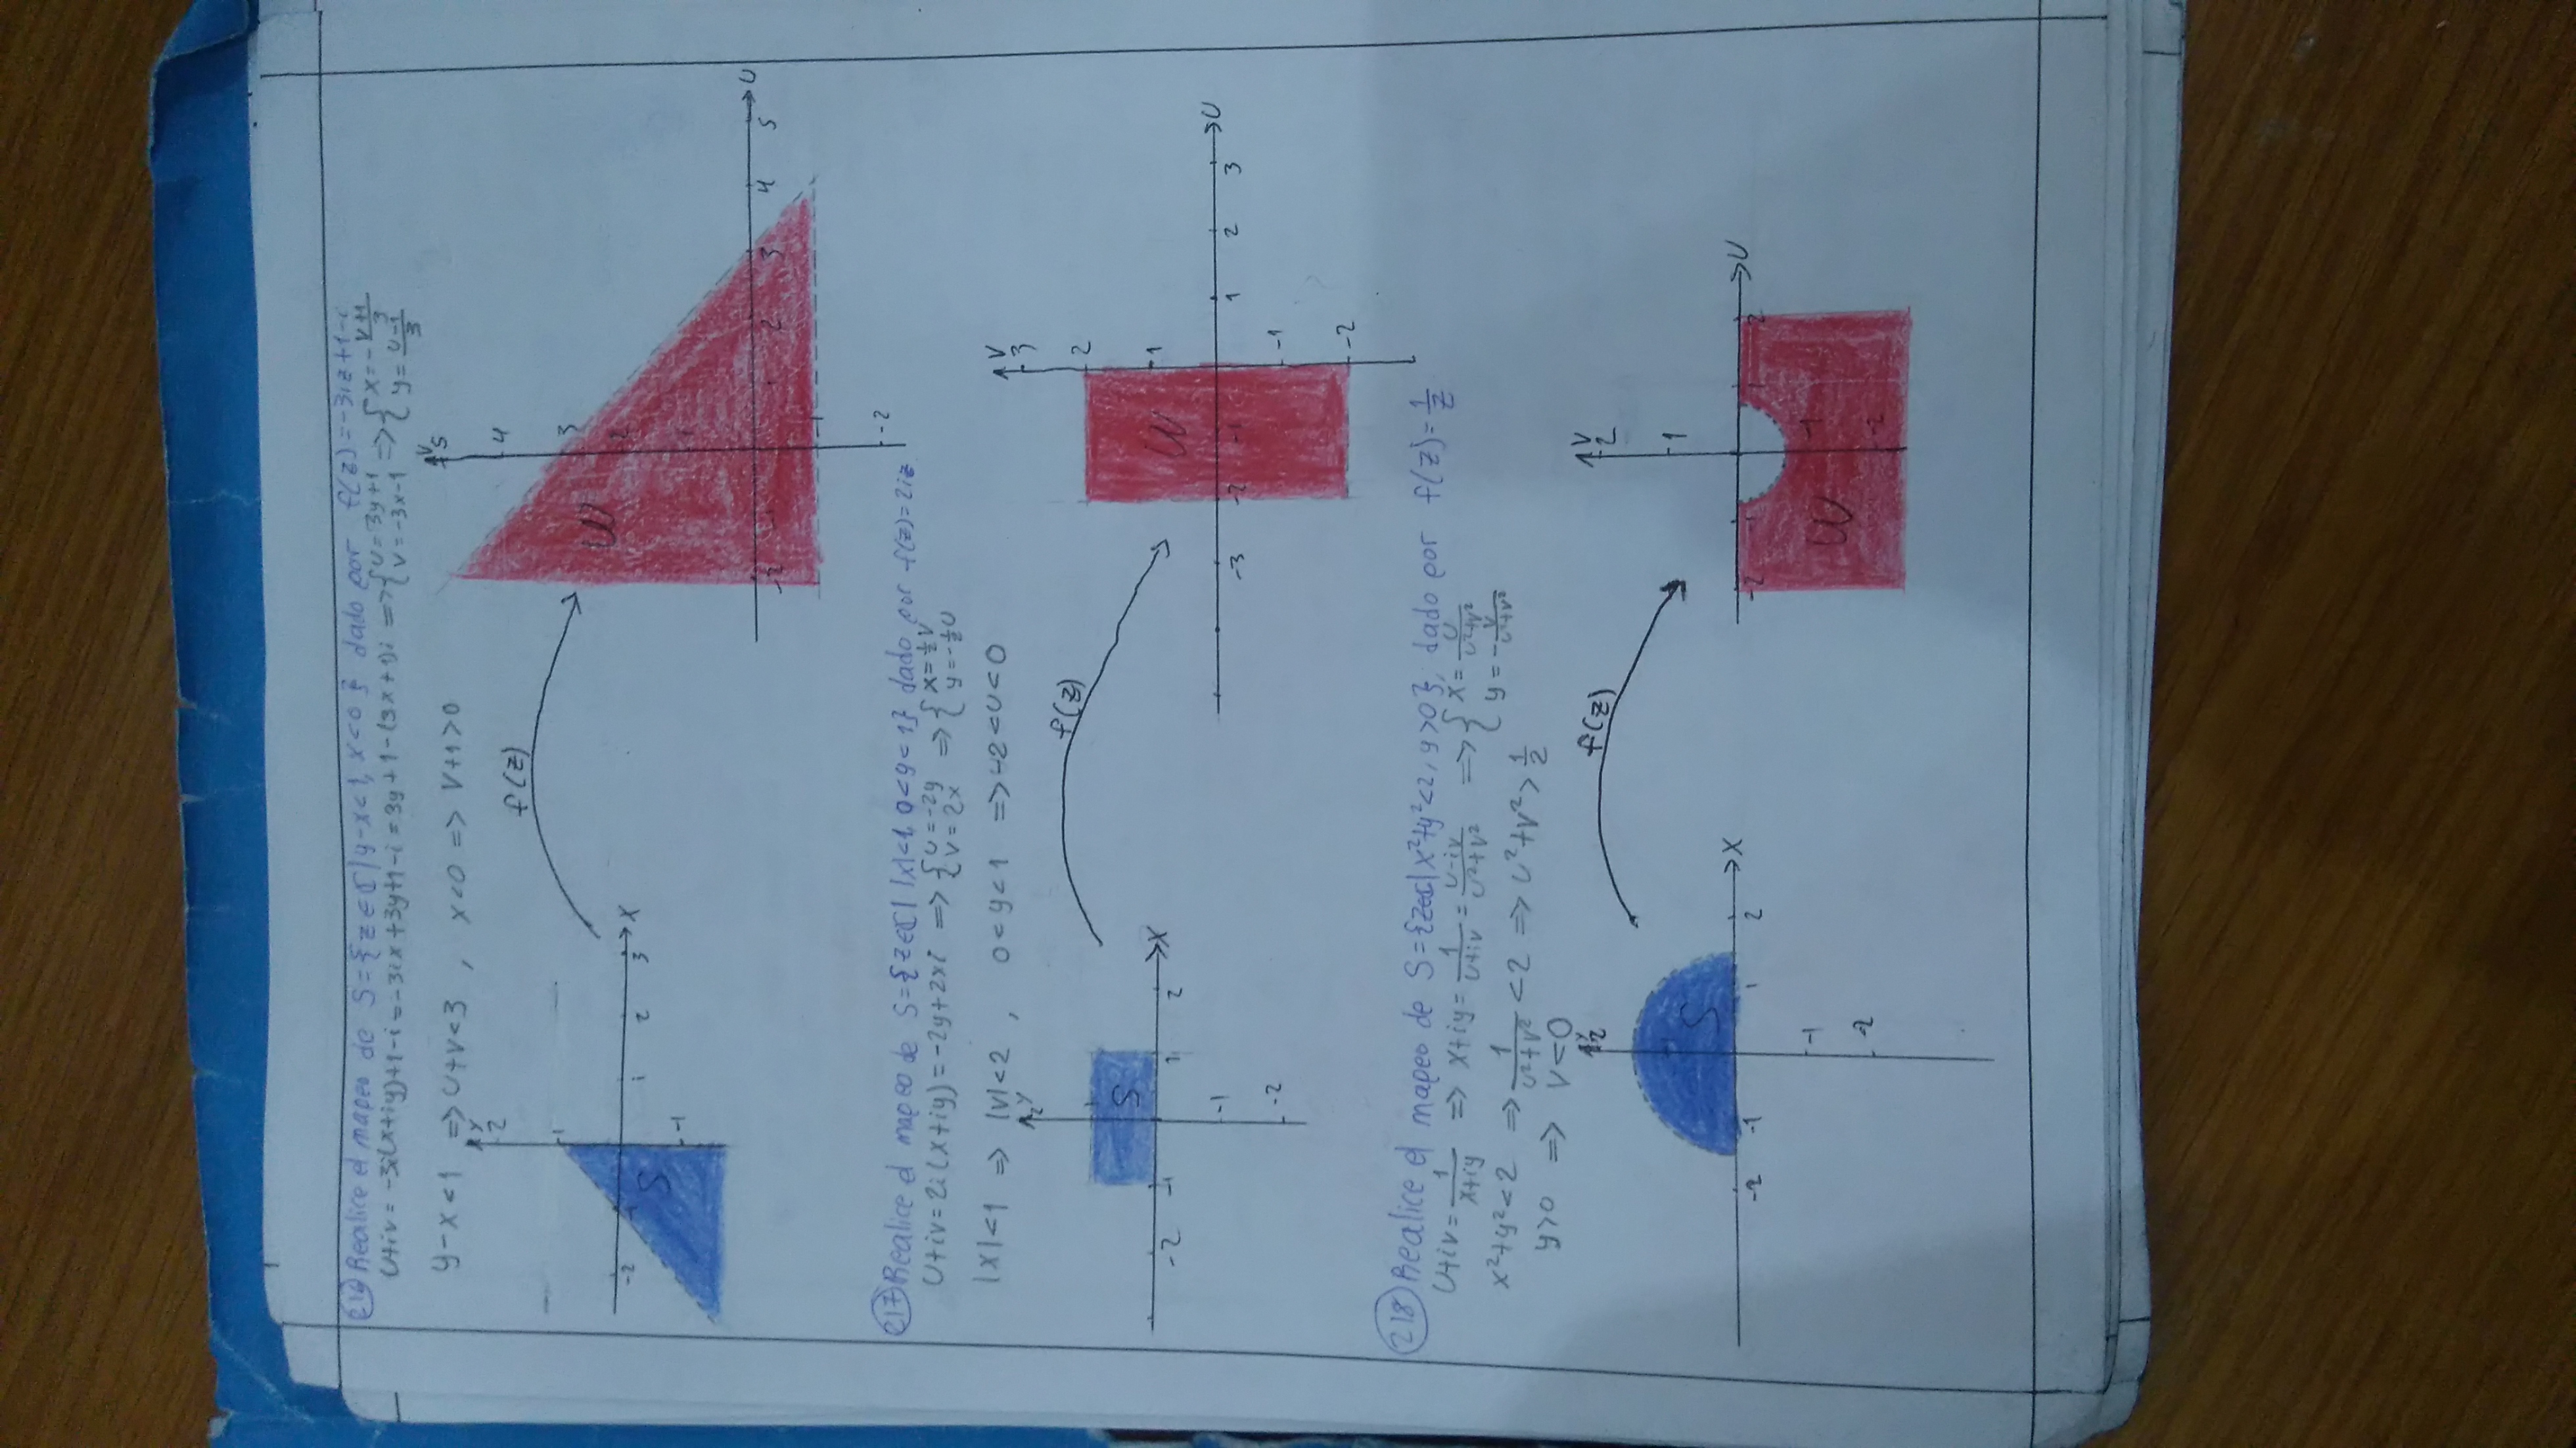 216 Realice el mapeo de S={z∈ℂ| y-x<1, x<0} dado por f(z)=-3iz+1-i
U+iV = -3i(x+iy)+1-i = -3ix+3y+1-i = 3y+1-(3x+1)i ⇒ { U=3y+1 V=-3x-1 ⇒ { x=-(V+1)/3 y=(U-1)/3
y-x<1 ⇒ U+V<3 , x<0 ⇒ V+1>0
Y
2
1
-2 -1 1 2 3 X
S
-1
f(z)
V
5
4
3
W
2
1
-2 -1 1 2 3 4 5 U
-1
-2
217 Realice el mapeo de S={z∈ℂ| |x|<1, 0<y<1} dado por f(z)=2iz
U+iV=2i(x+iy)=-2y+2xi ⇒ { U=-2y V=2x ⇒ { x=½V y=-½U
|x|<1 ⇒ |V|<2 , 0<y<1 ⇒ -2<U<0
Y
2
1
S
-2 -1 1 2 X
-1
-2
f(z)
V
3
2
1
W
-3 -2 -1 1 2 3 U
-1
-2
218 Realice el mapeo de S={z∈ℂ| x²+y²<2, y>0}, dado por f(z)=1/z
U+iV=1/(x+iy) ⇒ x+iy=1/(U+iV)=(U-iV)/(U²+V²) ⇒ { x=U/(U²+V²) y=-V/(U²+V²)
x²+y²<2 ⇒ 1/(U²+V²)<2 ⇒ U²+V²>1/2
y>0 ⇒ V<0
Y
2
1
S
-2 -1 1 2 X
-1
-2
f(z)
V
2
1
-2 -1 1 2 U
W
-1
-2